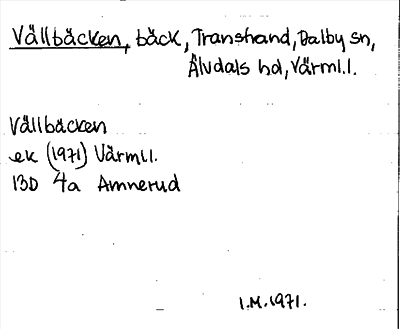 Vällbäcken, bäck, Transtrand, Dalby sn,
Älvdals hd, Värml.l.
Vällbäcken
ek (1971) Värml.l.
13D 4a Amnerud
I.M.1971.